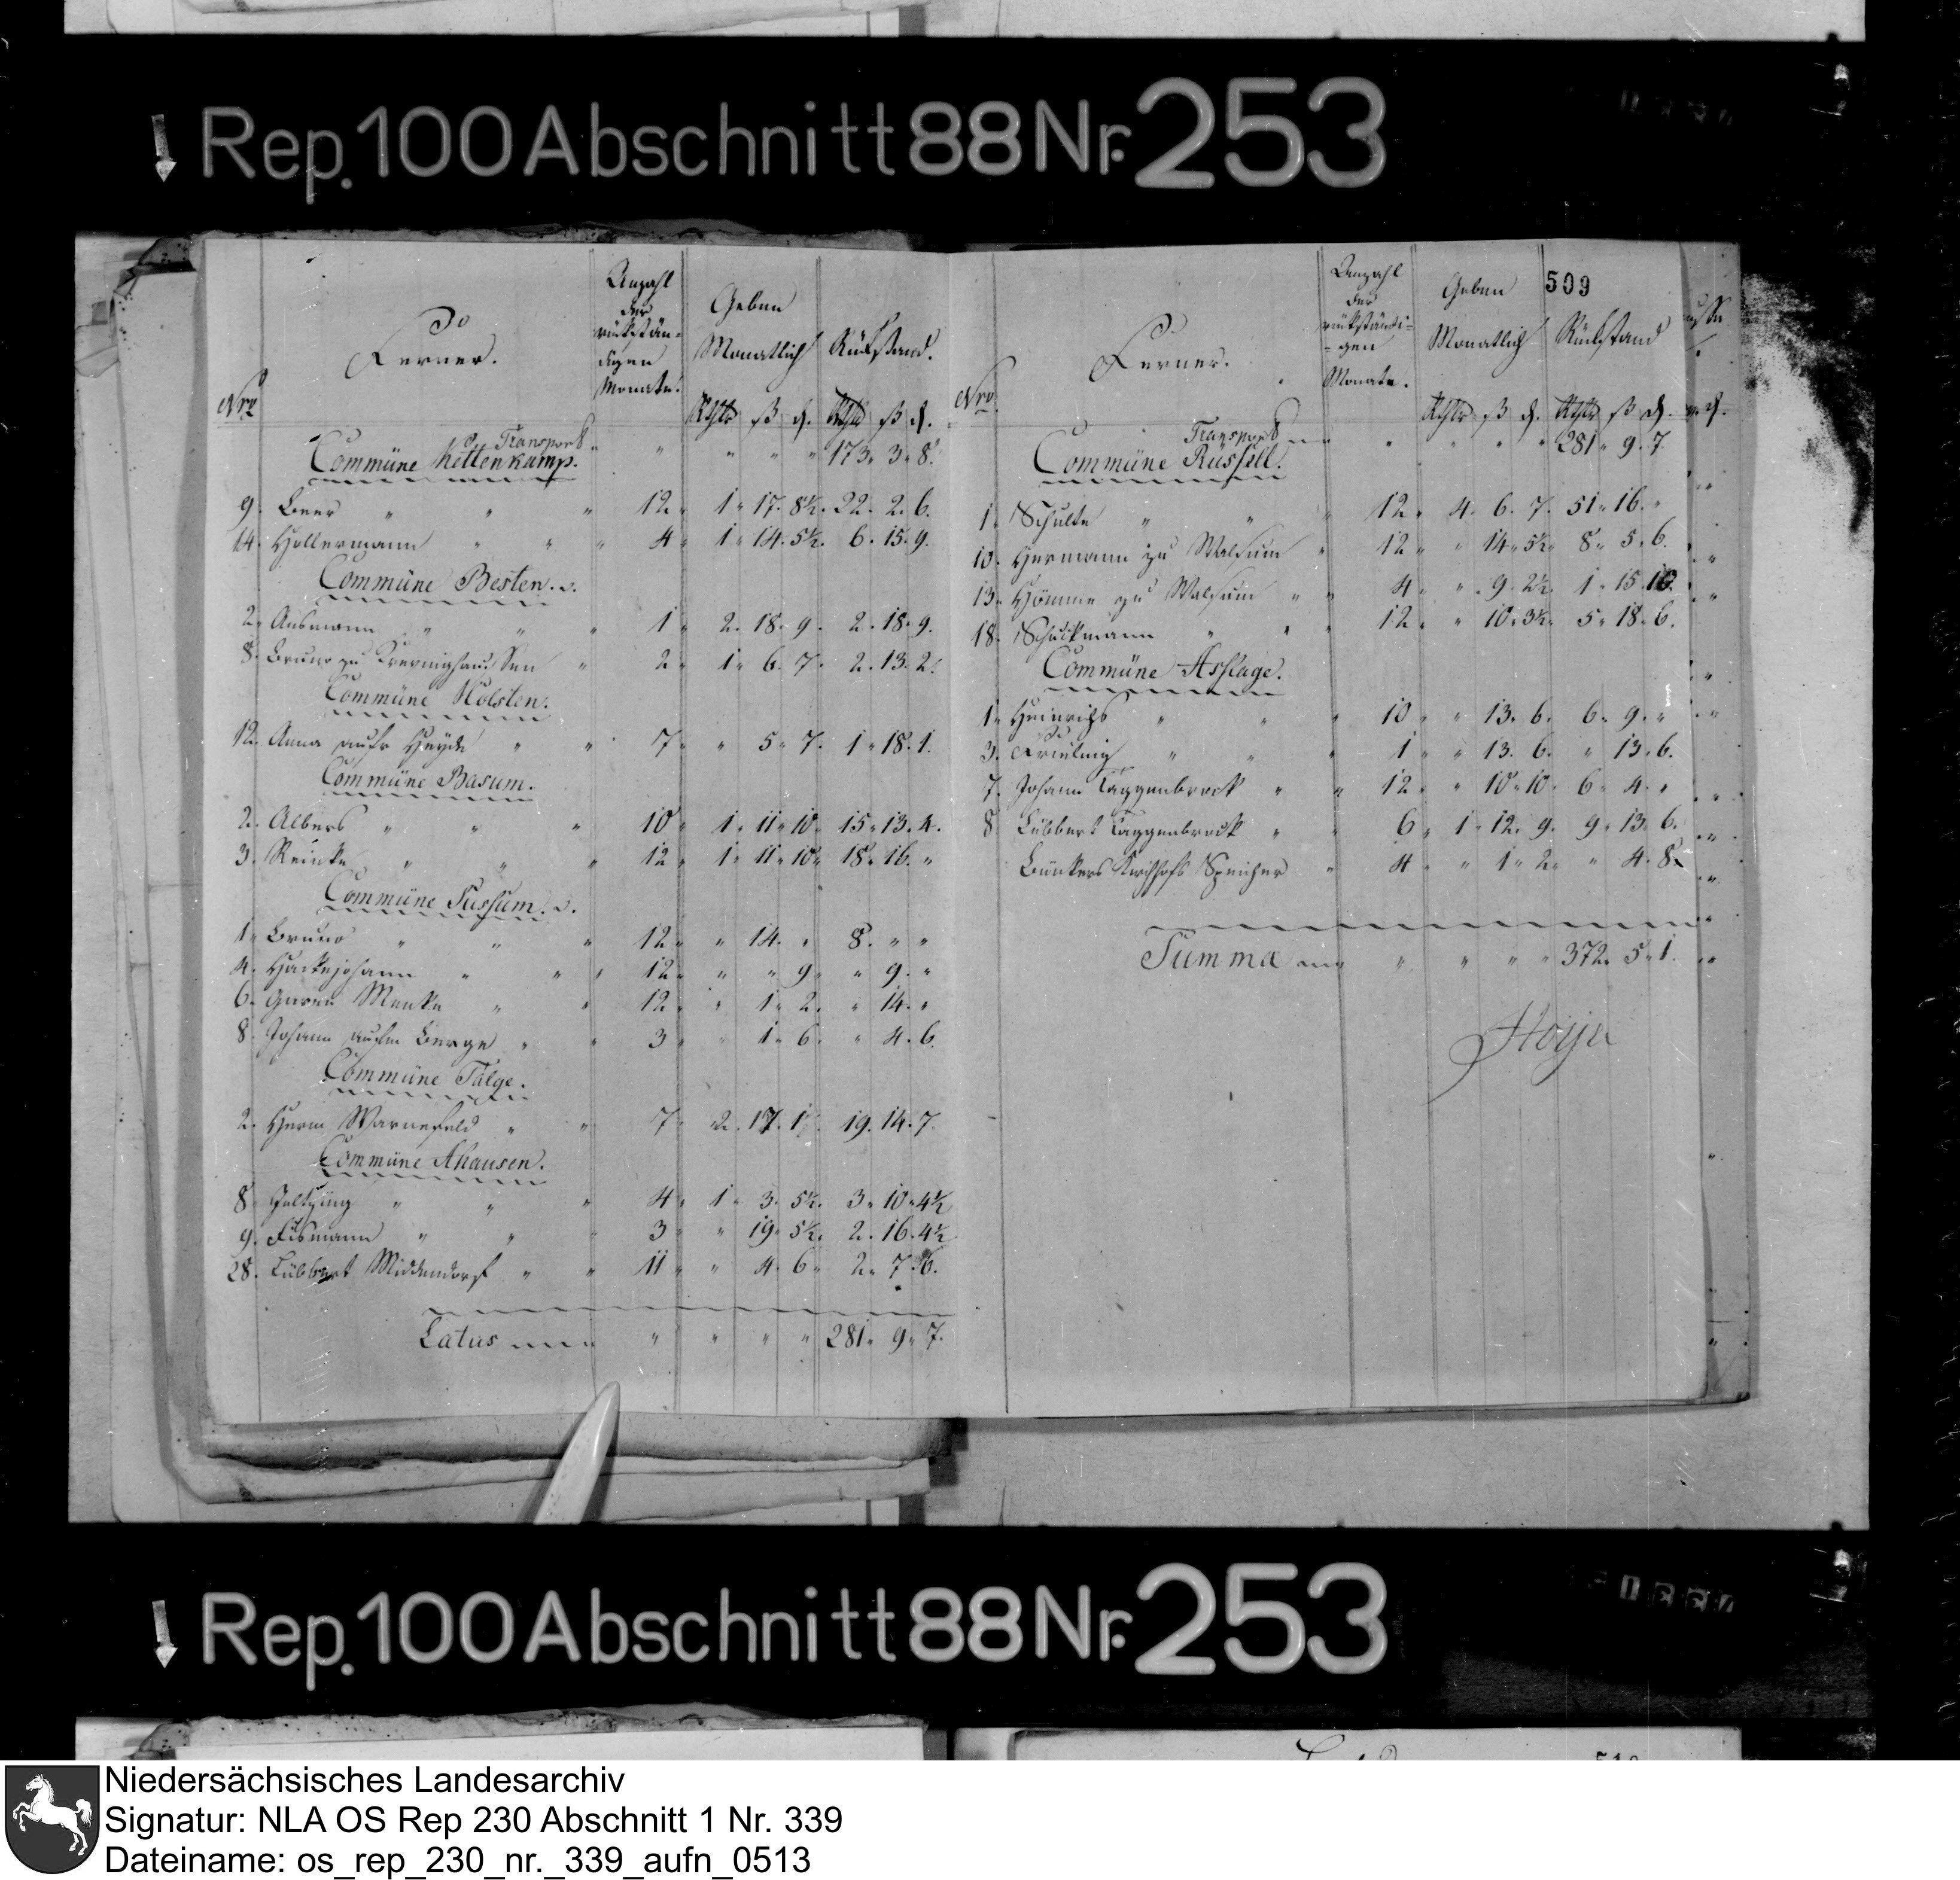 Rep. 100 Abschnitt 88 Nr. 253
Ferner.
Anzahl der rükstän-
digen Monate.
Geben Monatlich
Rükstand.
Nro
Rthlr ß d. Rthlr ß d.
Transport " " " " " 173. 3. 8.
Commüne Kettenkamp.
9. Beer " " " 12. 1. 17. 8½. 22. 2. 6.
14. Hollermann " " " 4. 1. 14. 5½. 6. 15. 9.
Commüne Besten.
2. Ausmann " " " 1. 2. 18. 9. 2. 18. 9.
8. Bruno zu " 2. 1. 6. 7. 2. 13. 2.
Commüne Holsten.
12. Anna aufr Heyde " " 7. " 5. 7. 1. 18. 1.
Commüne Basum.
2. Albers " " " 10. 1. 11. 10. 15. 13. 4.
3. Reinke " " " 12. 1. 11. 10. 18. 16. "
Commüne Sussum.
1. Bruno " " " 12. " 14. " 8. " "
4. Hackejohann " " " 12. " " 9. " 9. "
6. Menke " " 12. " 1. 2. " 14. "
8. Johann aufm Berge " " 3. " 1. 6. " 4. 6.
Commüne Talge.
2. Herm Warnefeld " " 7. 2. 17. 1. 19. 14. 7.
Commüne Ahausen.
8. " " " 4. 1. 3. 5½. 3. 10. 4½
9. Eismann " " " 3. " 19. 5½. 2. 16. 4½
28. Lübbert Middendorf " " 11. " 4. 6. 2. 7. 6.
Latus " " " " 281. 9. 7.
509
Ferner.
Anzahl der rükständi-
gen Monate.
Geben Monatlich
Rükstand
Nro.
Rthlr ß d. Rthlr ß d.
Transport " " " " 281. 9. 7.
Commüne Rüssell.
1. Schulte " " " 12. 4. 6. 7. 51. 16. "
10. Hermann zu Walsum " 12. " 14. 5½. 8. 5. 6.
13. Hömme zu Walsum " " 4. " 9. 2½. 1. 15. 10.
18. Schuckmann " " " 12. " 10. 3½. 5. 18. 6.
Commüne Asslage.
1. Heinrichs " " " 10. " 13. 6. 6. 9. "
3. Frieling " " " 1. " 13. 6. " 13. 6.
7. Johann Taggenbrock " " 12. " 10. 10. 6. 4. "
8. Lübbert Taggenbrock " " 6. 1. 12. 9. 9. 13. 6.
Bünkers Kirchhofs Speicher " 4. " 1. 2. " 4. 8.
Summa " " " " 372. 5. 1.
Rep. 100 Abschnitt 88 Nr. 253
Niedersächsisches Landesarchiv
Signatur: NLA OS Rep 230 Abschnitt 1 Nr. 339
Dateiname: os_rep_230_nr._339_aufn_0513